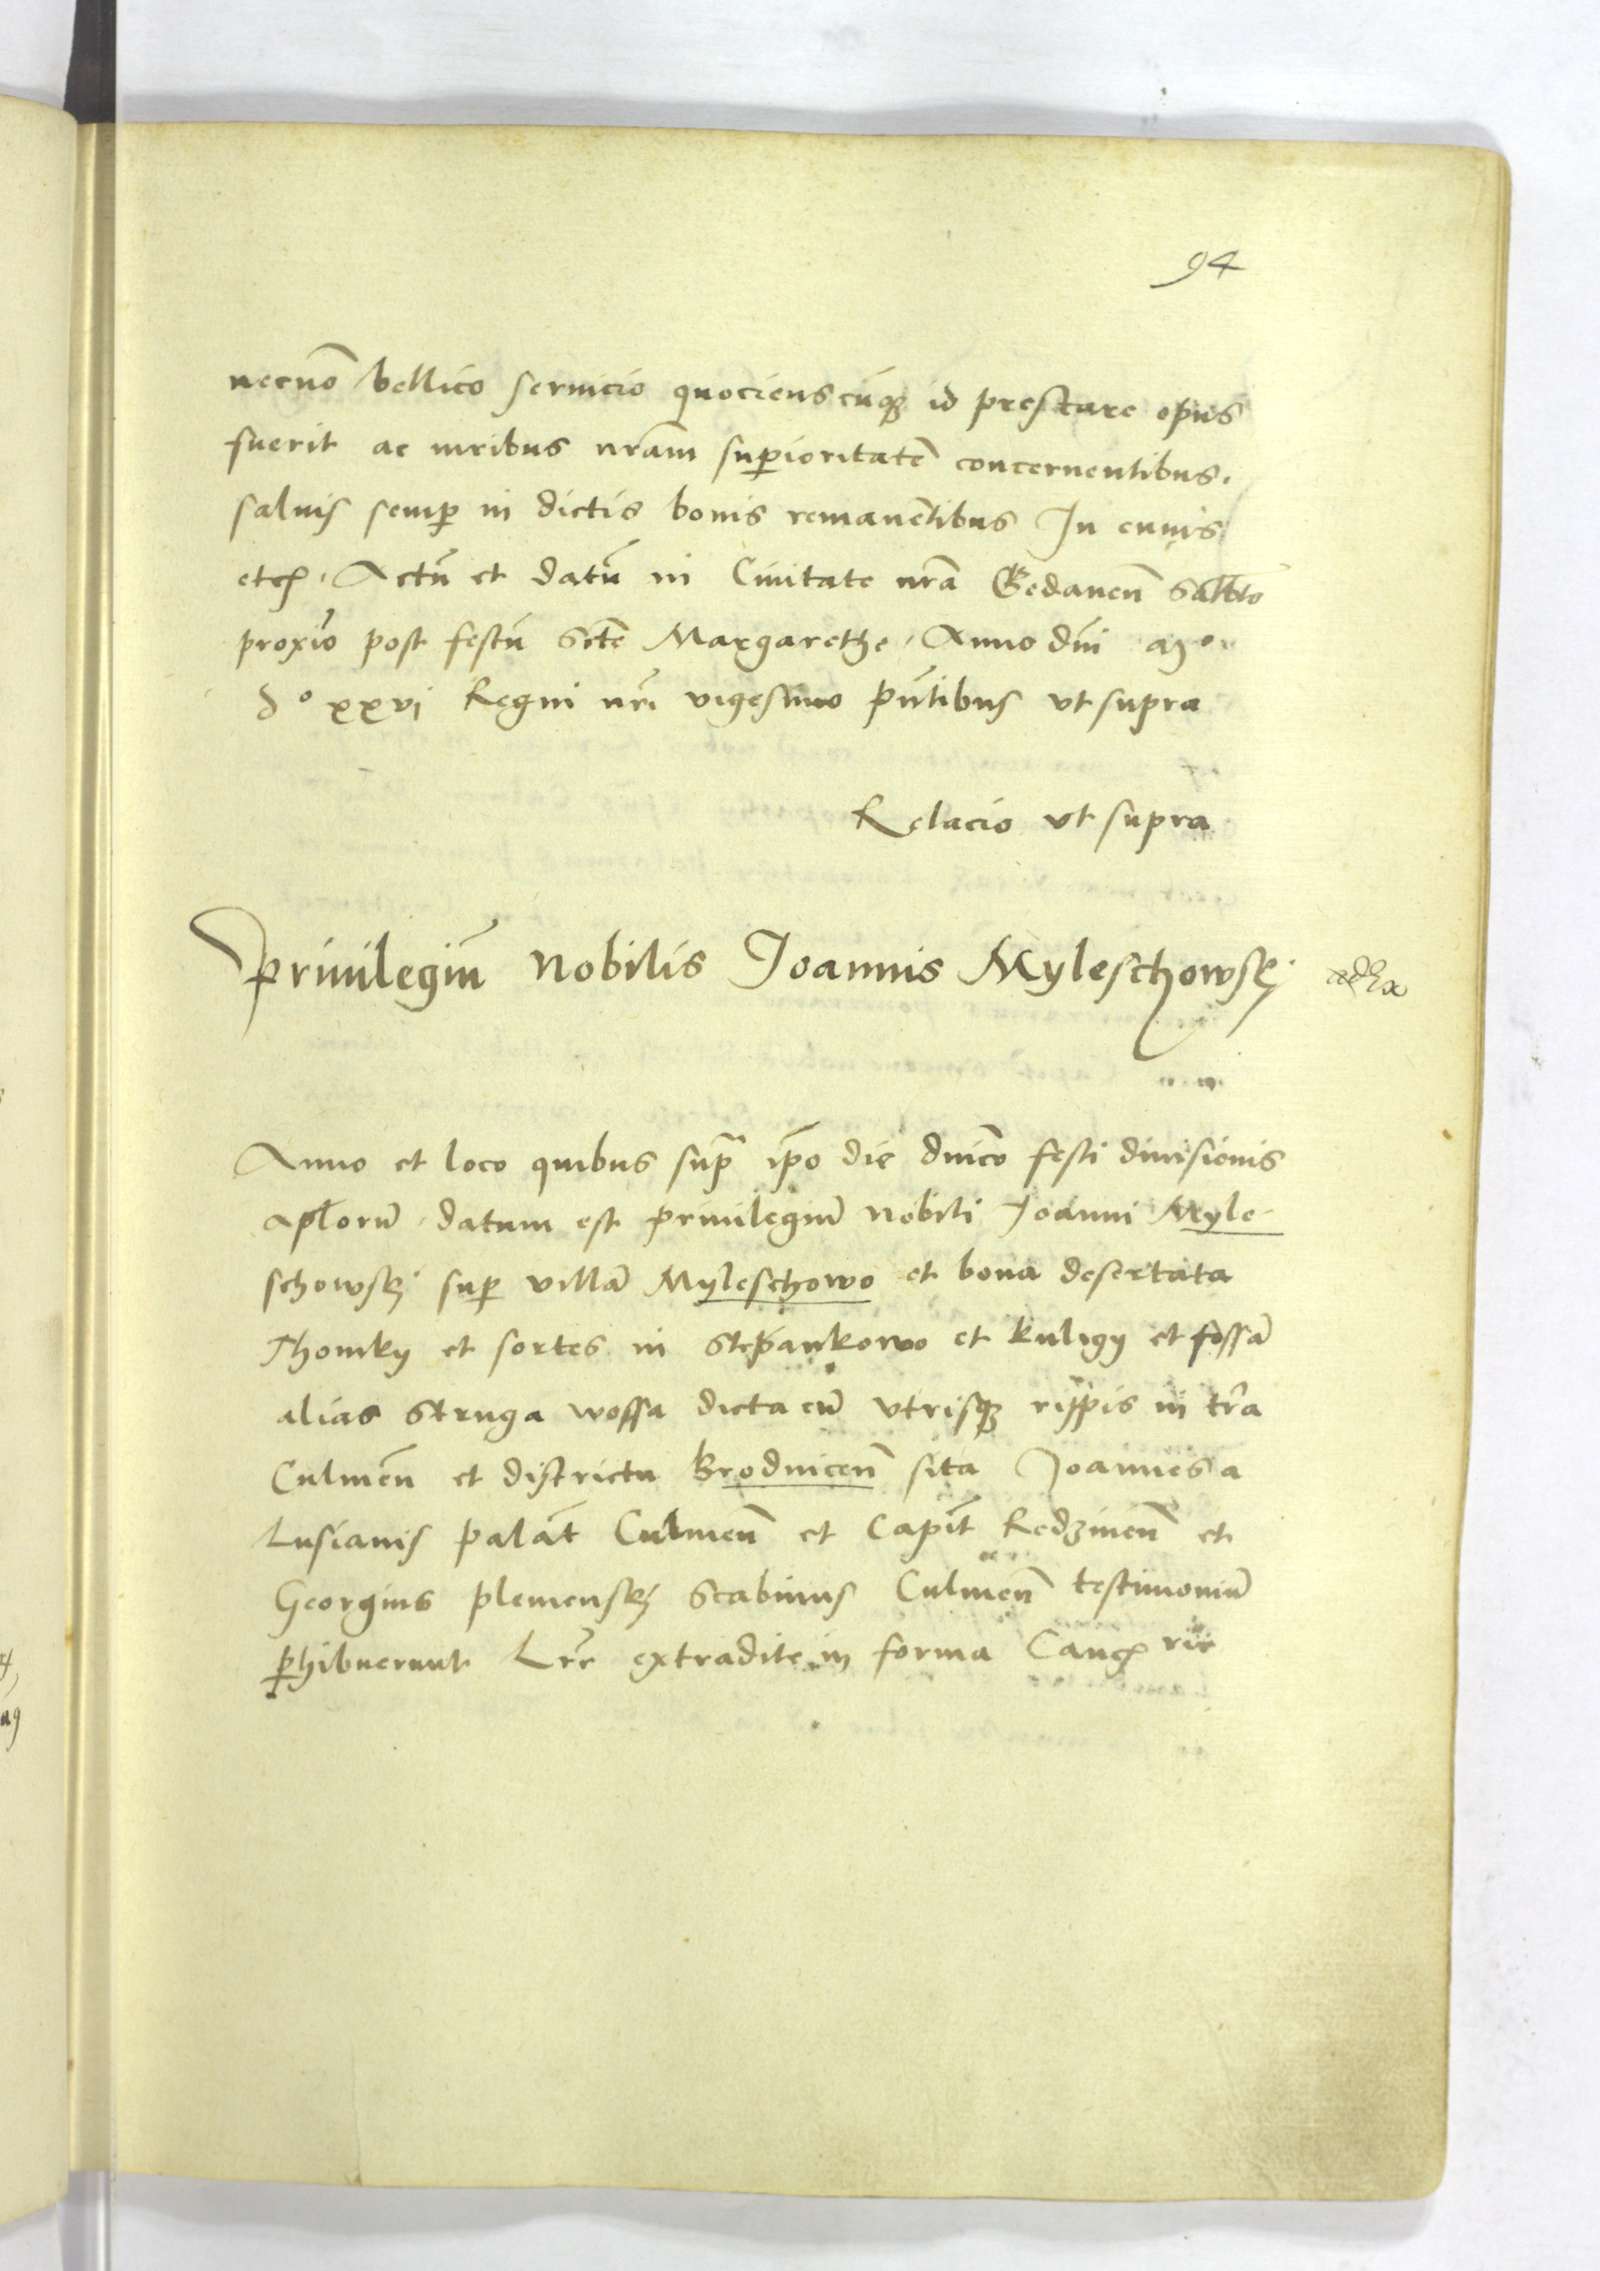 94
necno̅ bellico seruicio quocienscu̅qꝫ id prestare opus
fuerit ac iuribus nr̅am sup̲ioritate̅ concernentibus.
saluis semp̲ in dictis bonis remane̅tibus In cuius
etcꝭ. Actu̅ et datu̅ in Ciuitate nr̅a Gedanen̅ Sabb̅to
proxi̅o post festu̅ Sc̅te Margarethe. Anno dn̅i Mº
Dº xxvi Regni nr̅i vigesimo pn̅tibus vt supra
Relacio vt supra
Priuilegiu̅ Nobilis Joannis Myleschowskj
Anno et loco quibus sup̅ ip̅o die dn̅ico festi diuisionis
ap̅lorum̅ datum est priuilegiu̅ Nobili Joanni Myle-
schowskj sup̲ villa̅ Myleschowo et bona desertata
Thomky et sortes in Stepankowo et kuligy et fossa̅
alias Struga wossa dicta cu̅ vtrisqꝫ rippis in tr̅a
Culmen̅ et districtu Brodnicen̅ sita Joannes a
Lusianis palat̅ Culmen̅ et Capit̅ Redzinen̅ et
Georgius plemenskj Scabinus Culmen̅ testimoniu̅
ꝑhibuerunt Lr̅e extradite in forma Cancꝭ rie